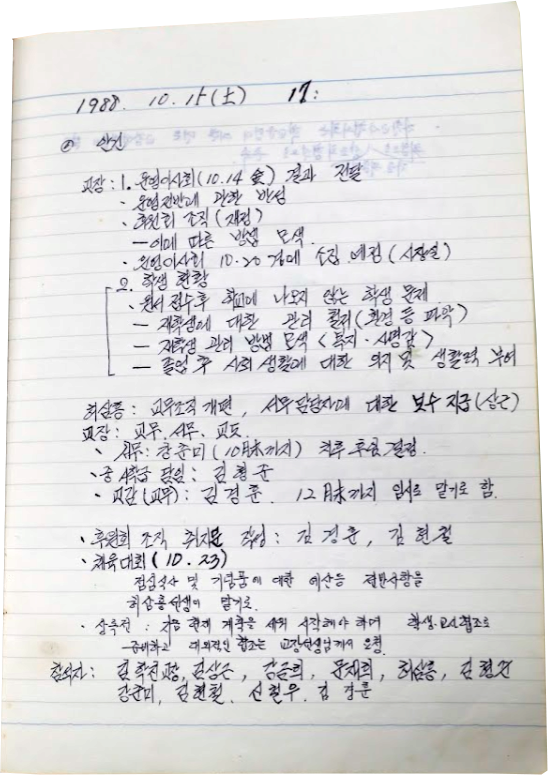 1988. 10. 15 (土) 17:
◎ 안건
교장 : 1. 운영이사회(10.14 金) 결과 전달
· 운영전반에 관한 반성
· 후원회 조직 (재정)
— 이에 따른 방법 모색.
· 운영이사회 10.20 경에 소집 예정 (시장실)
2. 학생 현황
· 원서 접수후 학교에 나오지 않는 학생 문제.
— 재학생에 대한 관리 철저 (환경 등 파악)
— 재학생 관리 방법 모색 < 특지 · 사명감 >
— 졸업 후 사회 생활에 대한 의지 및 생활력 부여
허삼룡 : 교무조직 개편, 서무 담당자에 대한 보수 지급 (상근)
교장 : 교무. 서무. 교도.
· 서무 : 강준미 (10月末까지) 차후 후임 결정.
· 중 4학급 담임 : 김형균
· 교감 (교무) : 김경훈. 12月末까지 임시로 맡기로 함.
· 후원회 조직 취지문 작성 : 김경훈, 김현철
· 체육대회 (10. 23)
점심식사 및 기념품에 대한 예산등 제반사항을
허삼룡선생이 맡기로.
· 상록전 : 지금 현재 계획을 세워 시작해야 하며 학생·교사 협조로
준비하고 대외적인 협조는 교장선생님께서 요청.
참석자 : 김학진교장, 김상근, 김군희, 문재희, 허삼룡, 김형균
강준미, 김현철, 신철우, 김경훈